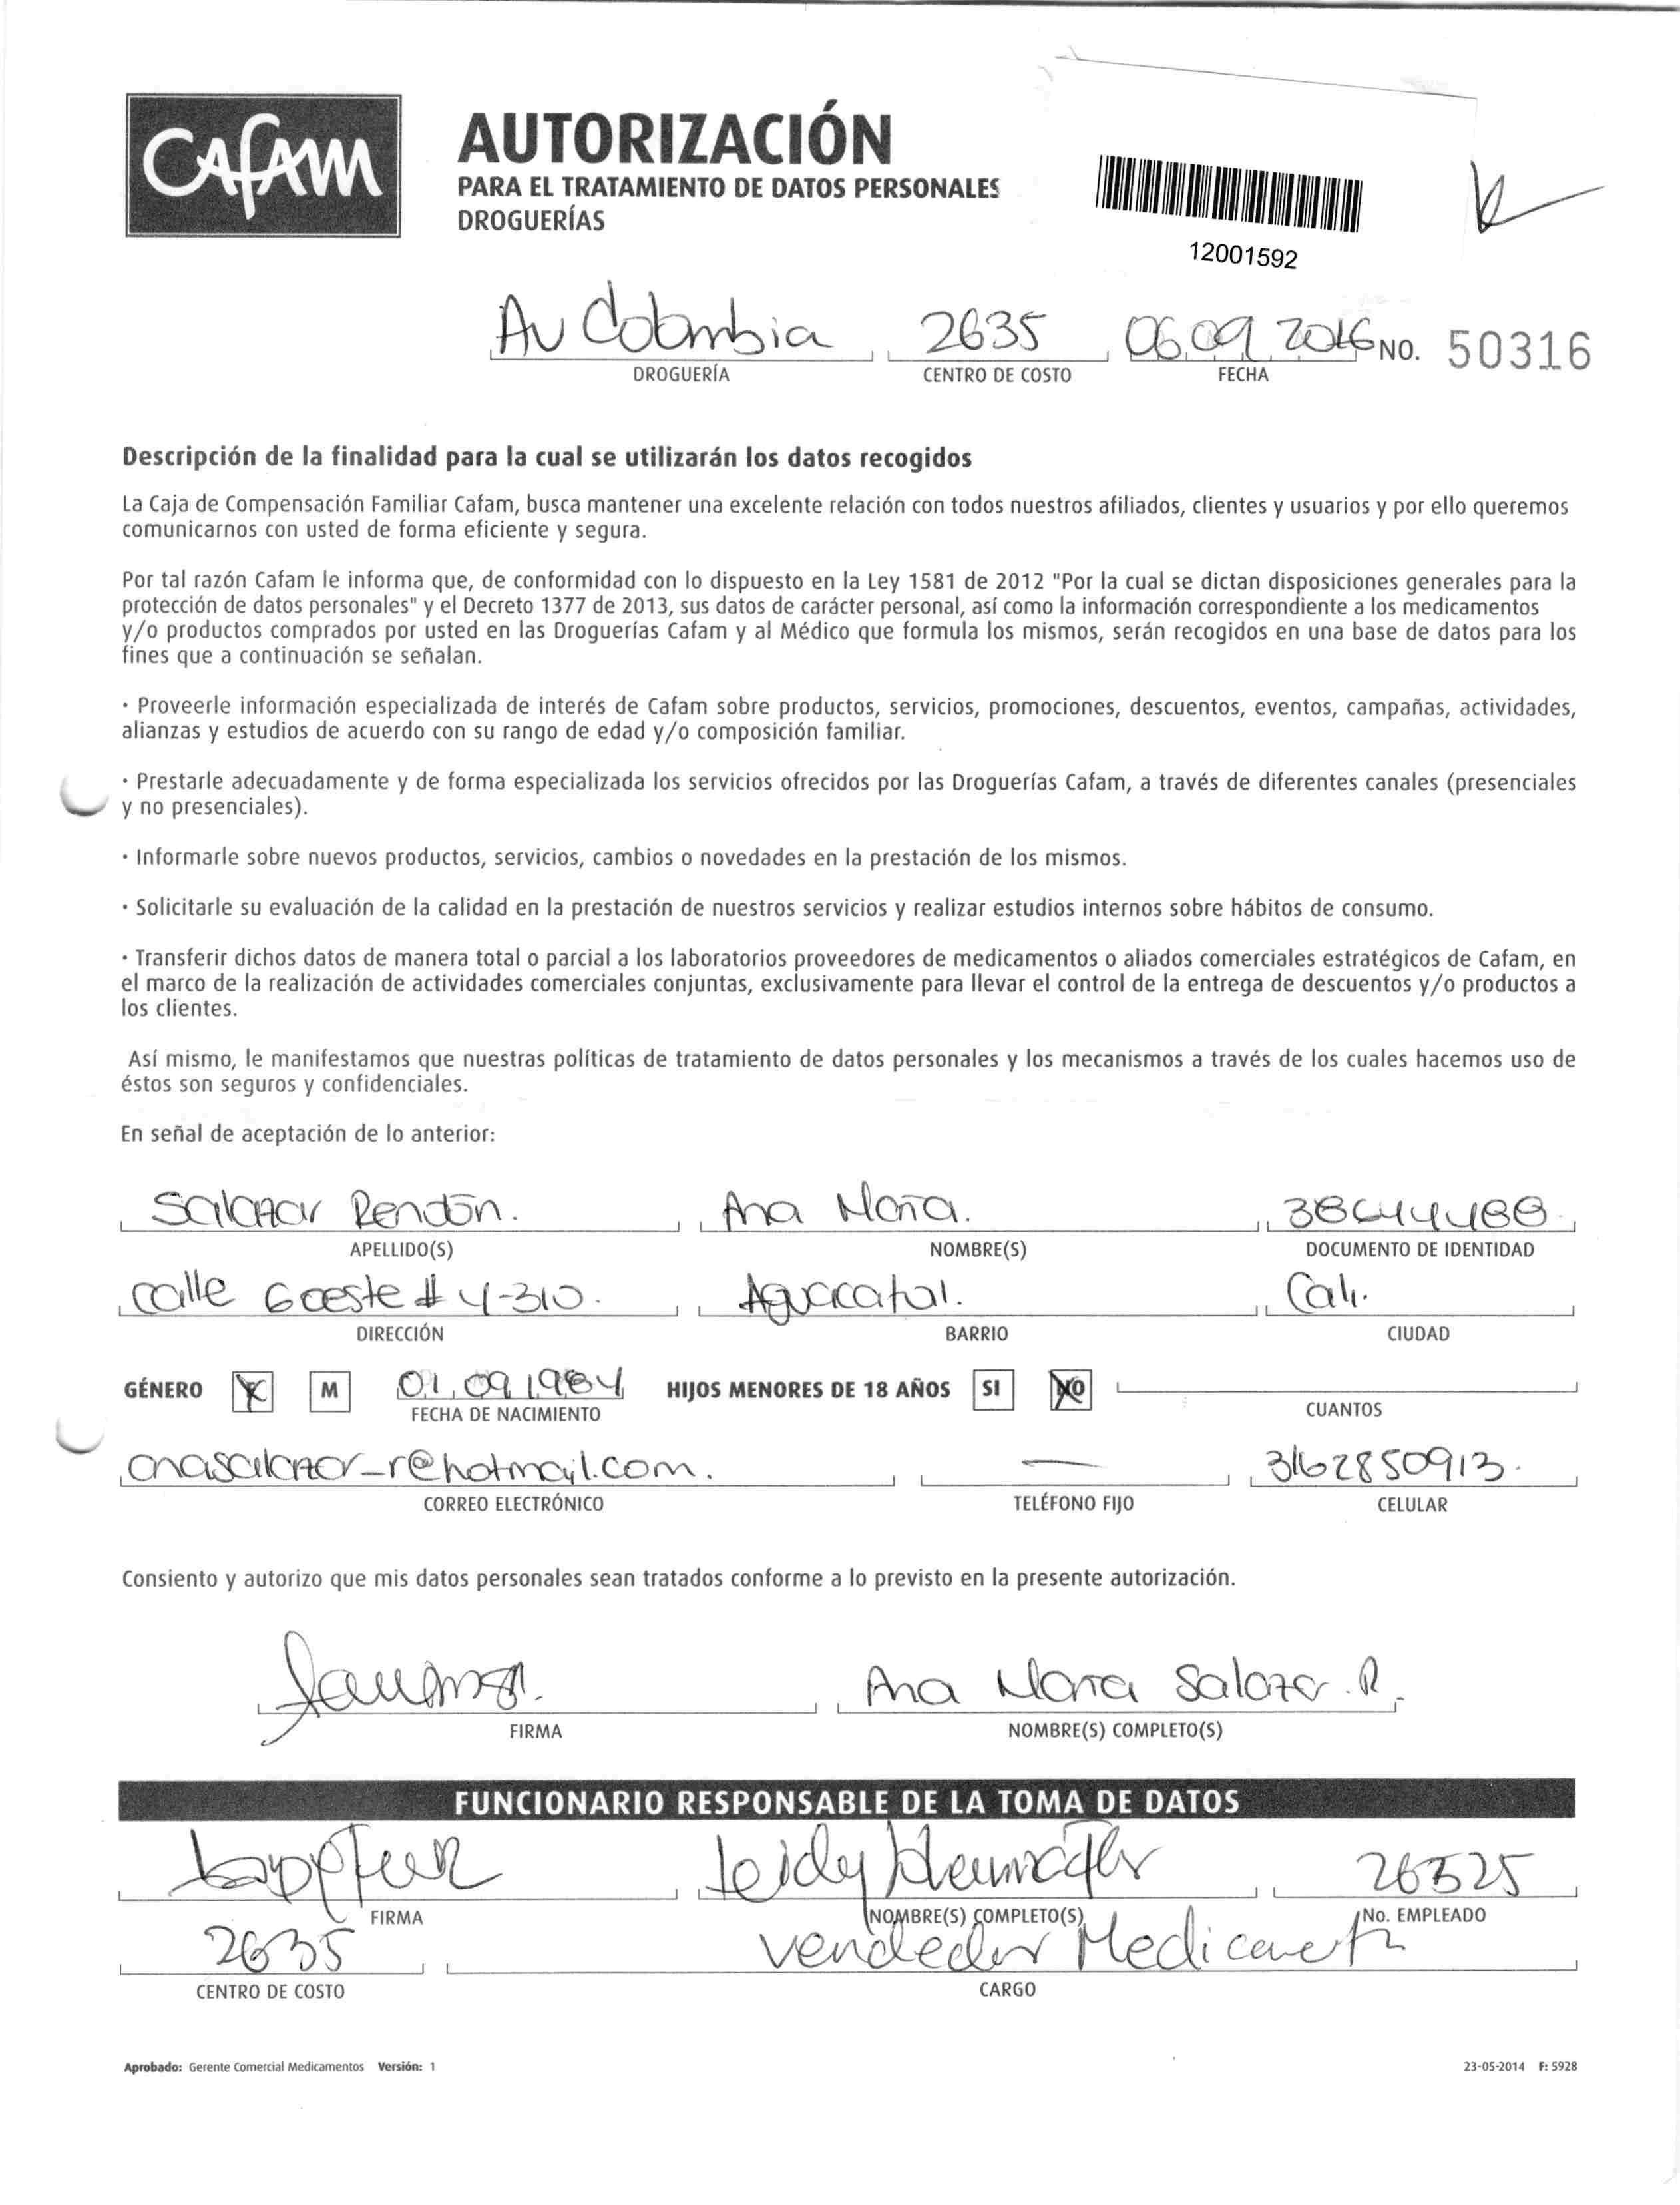 Cafam
AUTORIZACIÓN
PARA EL TRATAMIENTO DE DATOS PERSONALES
DROGUERÍAS
12001592
Av Colombia 2635 06 09 2016 NO. 50316
DROGUERÍA CENTRO DE COSTO FECHA
Descripción de la finalidad para la cual se utilizarán los datos recogidos
La Caja de Compensación Familiar Cafam, busca mantener una excelente relación con todos nuestros afiliados, clientes y usuarios y por ello queremos
comunicarnos con usted de forma eficiente y segura.
Por tal razón Cafam le informa que, de conformidad con lo dispuesto en la Ley 1581 de 2012 "Por la cual se dictan disposiciones generales para la
protección de datos personales" y el Decreto 1377 de 2013, sus datos de carácter personal, así como la información correspondiente a los medicamentos
y/o productos comprados por usted en las Droguerías Cafam y al Médico que formula los mismos, serán recogidos en una base de datos para los
fines que a continuación se señalan.
· Proveerle información especializada de interés de Cafam sobre productos, servicios, promociones, descuentos, eventos, campañas, actividades,
alianzas y estudios de acuerdo con su rango de edad y/o composición familiar.
· Prestarle adecuadamente y de forma especializada los servicios ofrecidos por las Droguerías Cafam, a través de diferentes canales (presenciales
y no presenciales).
· Informarle sobre nuevos productos, servicios, cambios o novedades en la prestación de los mismos.
· Solicitarle su evaluación de la calidad en la prestación de nuestros servicios y realizar estudios internos sobre hábitos de consumo.
· Transferir dichos datos de manera total o parcial a los laboratorios proveedores de medicamentos o aliados comerciales estratégicos de Cafam, en
el marco de la realización de actividades comerciales conjuntas, exclusivamente para llevar el control de la entrega de descuentos y/o productos a
los clientes.
Así mismo, le manifestamos que nuestras políticas de tratamiento de datos personales y los mecanismos a través de los cuales hacemos uso de
éstos son seguros y confidenciales.
En señal de aceptación de lo anterior:
Salazar Rendón. Ana María. 38644488
APELLIDO(S) NOMBRE(S) DOCUMENTO DE IDENTIDAD
Calle 6 oeste # 4-310. Aguacatal. Cali.
DIRECCIÓN BARRIO CIUDAD
GÉNERO F M 01 09 1984 HIJOS MENORES DE 18 AÑOS SI NO
FECHA DE NACIMIENTO CUANTOS
anasalazar_r@hotmail.com. — 3162850913.
CORREO ELECTRÓNICO TELÉFONO FIJO CELULAR
Consiento y autorizo que mis datos personales sean tratados conforme a lo previsto en la presente autorización.
Ana Maria Salazar. R.
FIRMA NOMBRE(S) COMPLETO(S)
FUNCIONARIO RESPONSABLE DE LA TOMA DE DATOS
Leidy 26325
FIRMA NOMBRE(S) COMPLETO(S) No. EMPLEADO
2635 vendedor
CENTRO DE COSTO CARGO
Aprobado: Gerente Comercial Medicamentos Versión: 1 23-05-2014 F: 5928